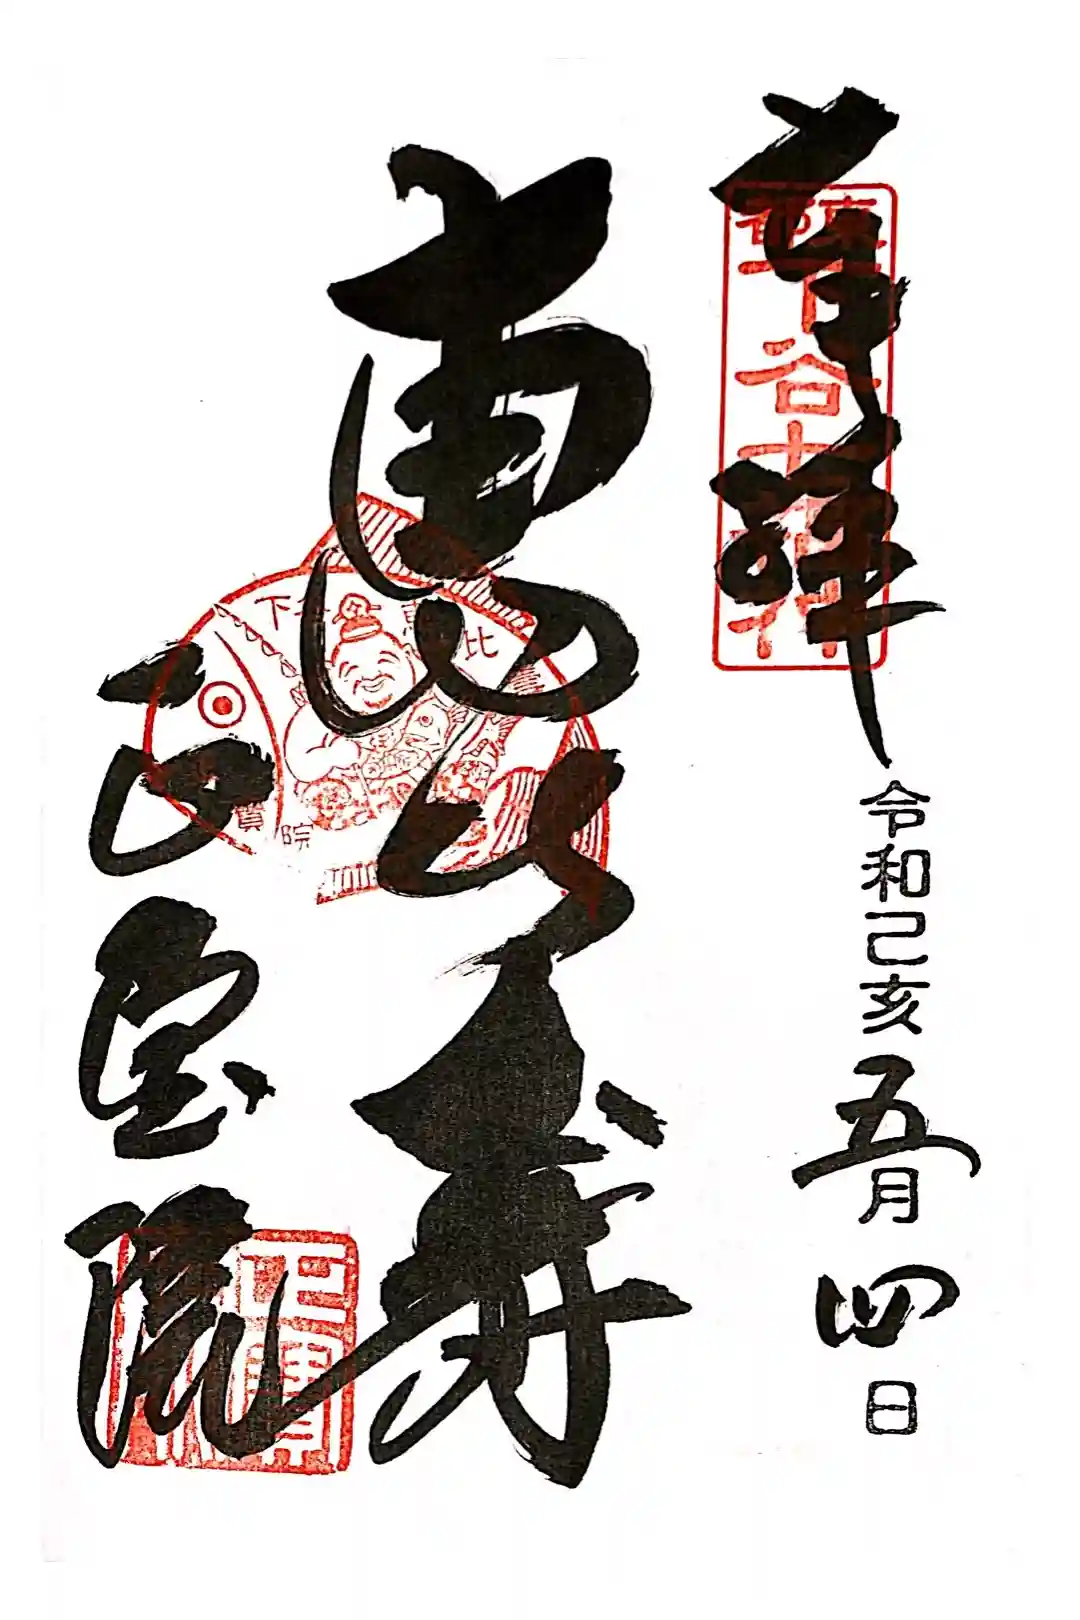 奉拝
東都下谷七福神
令和己亥五月四日
恵比寿
下谷 恵比寿
正寶院
正宝院
正寶院